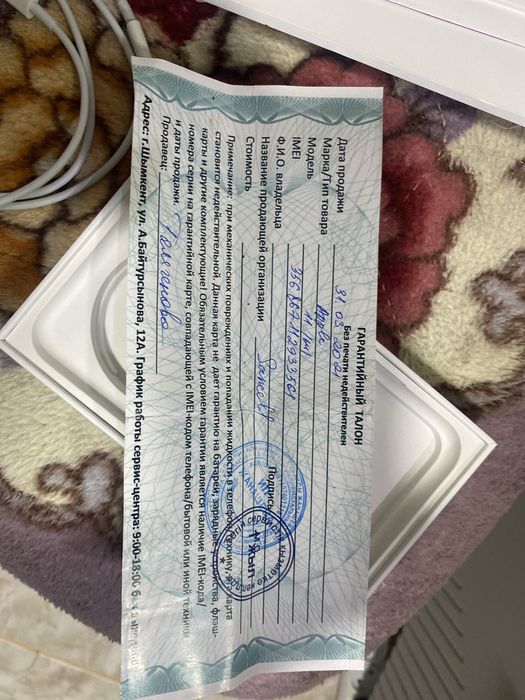 ГАРАНТИЙНЫЙ ТАЛОН
Без печати недействителен
Дата продажи 31. 03. 2021
Марка/Тип товара Apple
Модель 11
IMEI
Ф.И.О. владельца
Название продающей организации
Стоимость Подпись
Примечание: при механических повреждениях и попадании жидкости в телефон/технику, карта
становится недействительной. Данная карта не дает гарантию на батарей, зарядные устройства, флэш-
карты и другие комплектующие! Обязательным условием гарантии является наличие IMEI-кода/
номера серии на гарантийной карте, совпадающей с IMEI-кодом телефона/бытовой или иной техники
и даты продажи.
Продавец:
Адрес: г.Шымкент, ул. А.Байтурсынова, 12А. График работы сервис-центра: 9:00-18:00